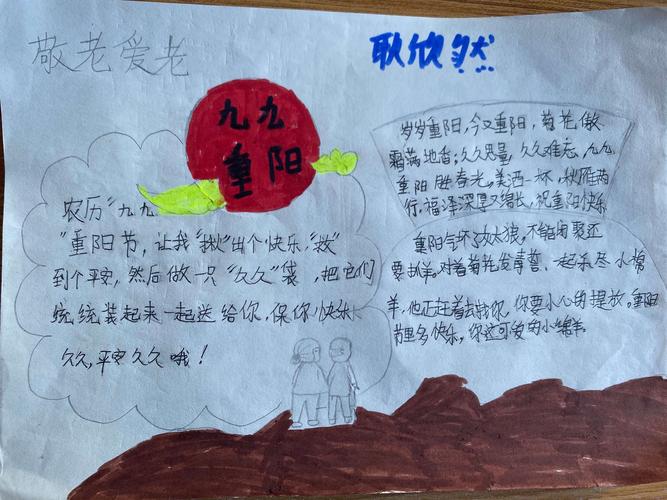 敬老爱老
耿欣然
九九
重阳
农历"九九
"重阳节，让我"揪"出个快乐，"救"
到个平安，然后做一只"久久"袋，把它们
统统装起来一起送给你，保你快乐
久久，平安久久哦！
岁岁重阳，今又重阳，菊花傲
霜满地香；久久思量，久久难忘，九九
重阳胜春光，美酒一杯，秋雁两
行，福泽深厚又绵长，祝重阳快乐
重阳气坏了灰太狼，不能团聚还
要抓羊。对着菊花发毒誓，一起杀尽小绵
羊，他正赶着去找你，你要小心的提放。重阳
节里多快乐，你这可爱的小绵羊。